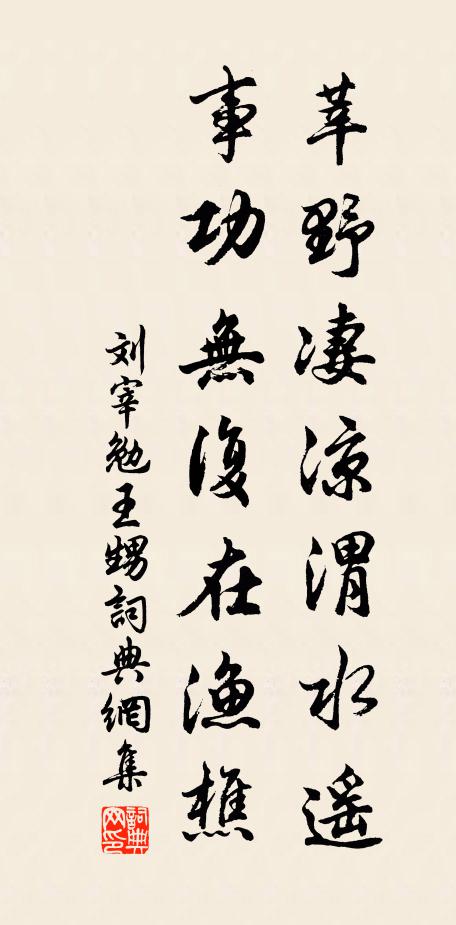 莘野凄凉渭水遥
事功無復在漁樵
刘宰勉王甥詞典網集
詞典网印